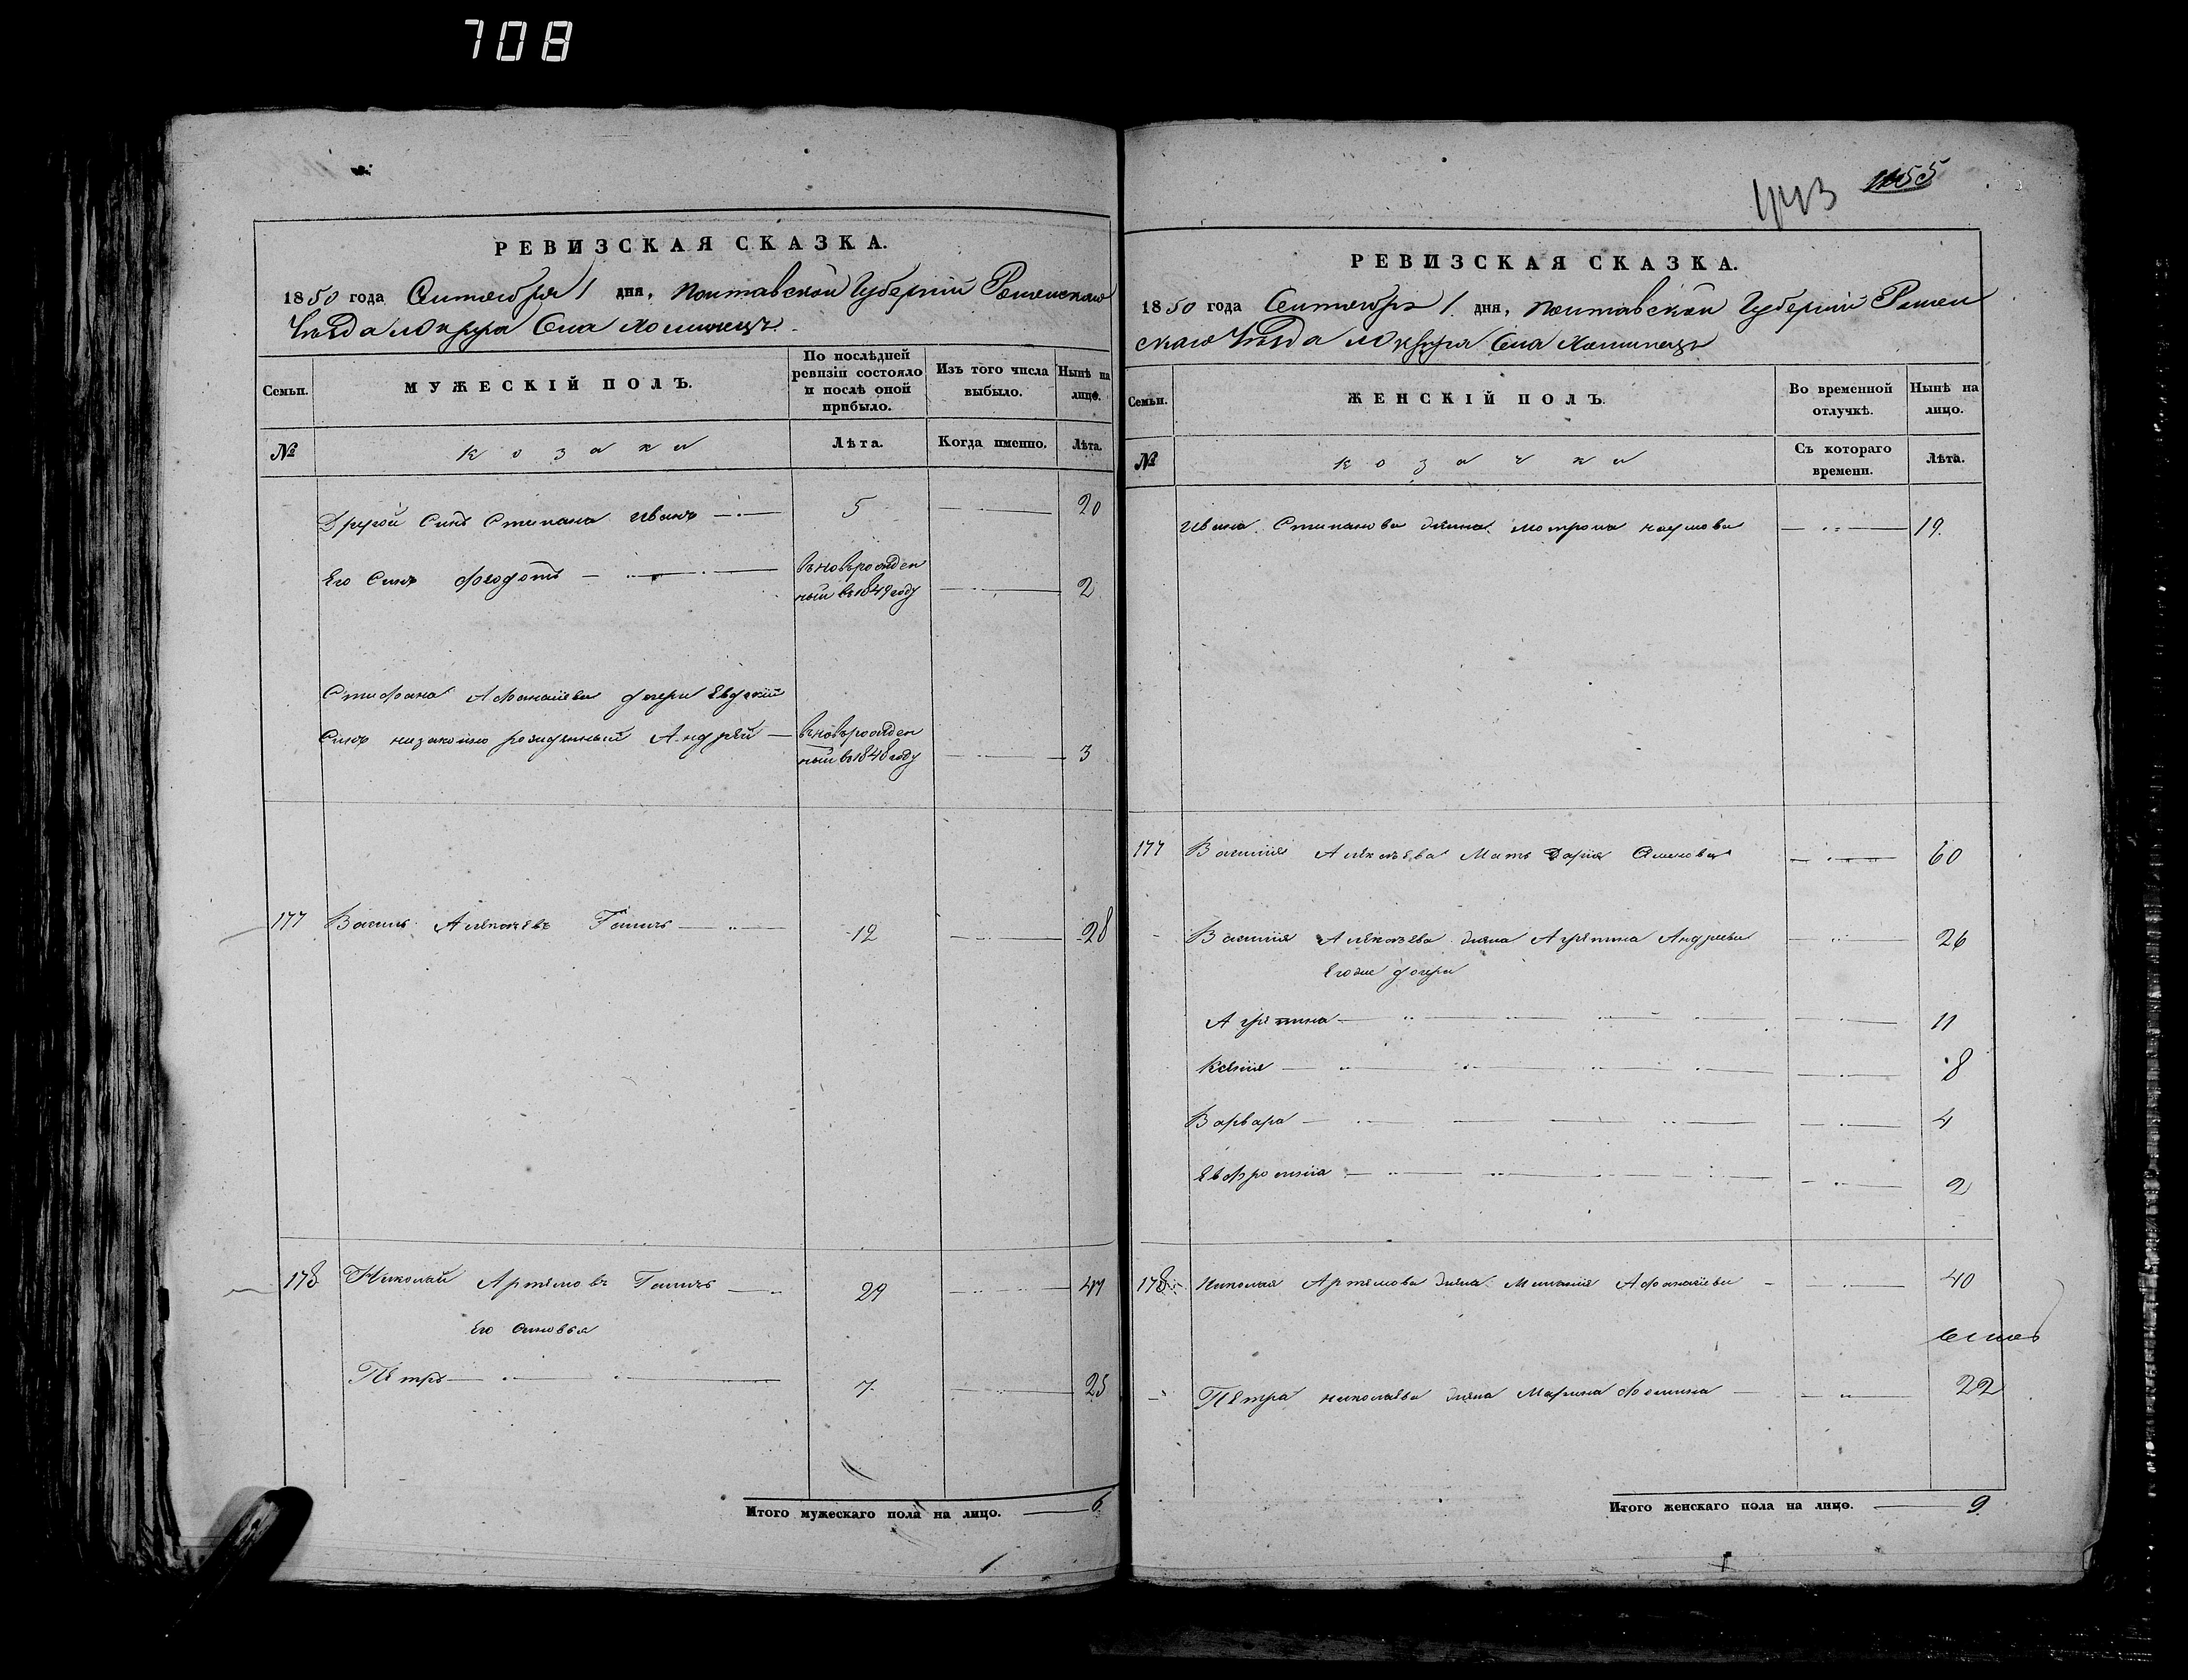 708
1443 1455
РЕВИЗСКАЯ СКАЗКА.
1850 года Сентября 1 дня, Полтавской Губерніи Роменскаго
Уѣзда м Округа Села Хоминецъ
Семьи.
МУЖЕСКІЙ ПОЛЪ.
По послѣдней ревизіи состояло и послѣ оной прибыло.
Изъ того числа выбыло.
Нынѣ на лицо.
№
козаки
Лѣта.
Когда именно.
Лѣта.
Другой Синъ Стипана Иванъ 5 20
Его Синъ Фогофотъ вновьрожден
ный въ 1849 году 2
Стифана Афанасіева дочери Евдокіи
Синъ низаконно рожденный Андрѣй вновьрожден
ный въ 1848 году 3
177 Василь Алексѣевъ 12 28
178 Николай Артемовъ 29 47
Его Синовья
Пётръ 7 25
Итого мужескаго пола на лицо. 6
РЕВИЗСКАЯ СКАЗКА.
1850 года Сентября 1 дня, Полтавской Губерніи Ромен
скаго Уѣзда м Округа Села Хоминецъ
Семьи.
ЖЕНСКІЙ ПОЛЪ.
Во временной отлучкѣ.
Нынѣ на лицо.
№
козачки
Съ котораго времени.
Лѣта.
Ивана Стипанова жина Мотрона Наумова 19
177 Василія Алексѣева Мать Дарія Семенова 60
Василія Алексѣева жина Агрипина Андреева 26
Егоже дочери
Агрипина 11
Ксенія 8
Варвара 4
Евфросинія 2
178 Николая Артемова жина Миланія Афанасіева 40
Пётра Николаева жина Марина Фомина 22
Итого женскаго пола на лицо. 9